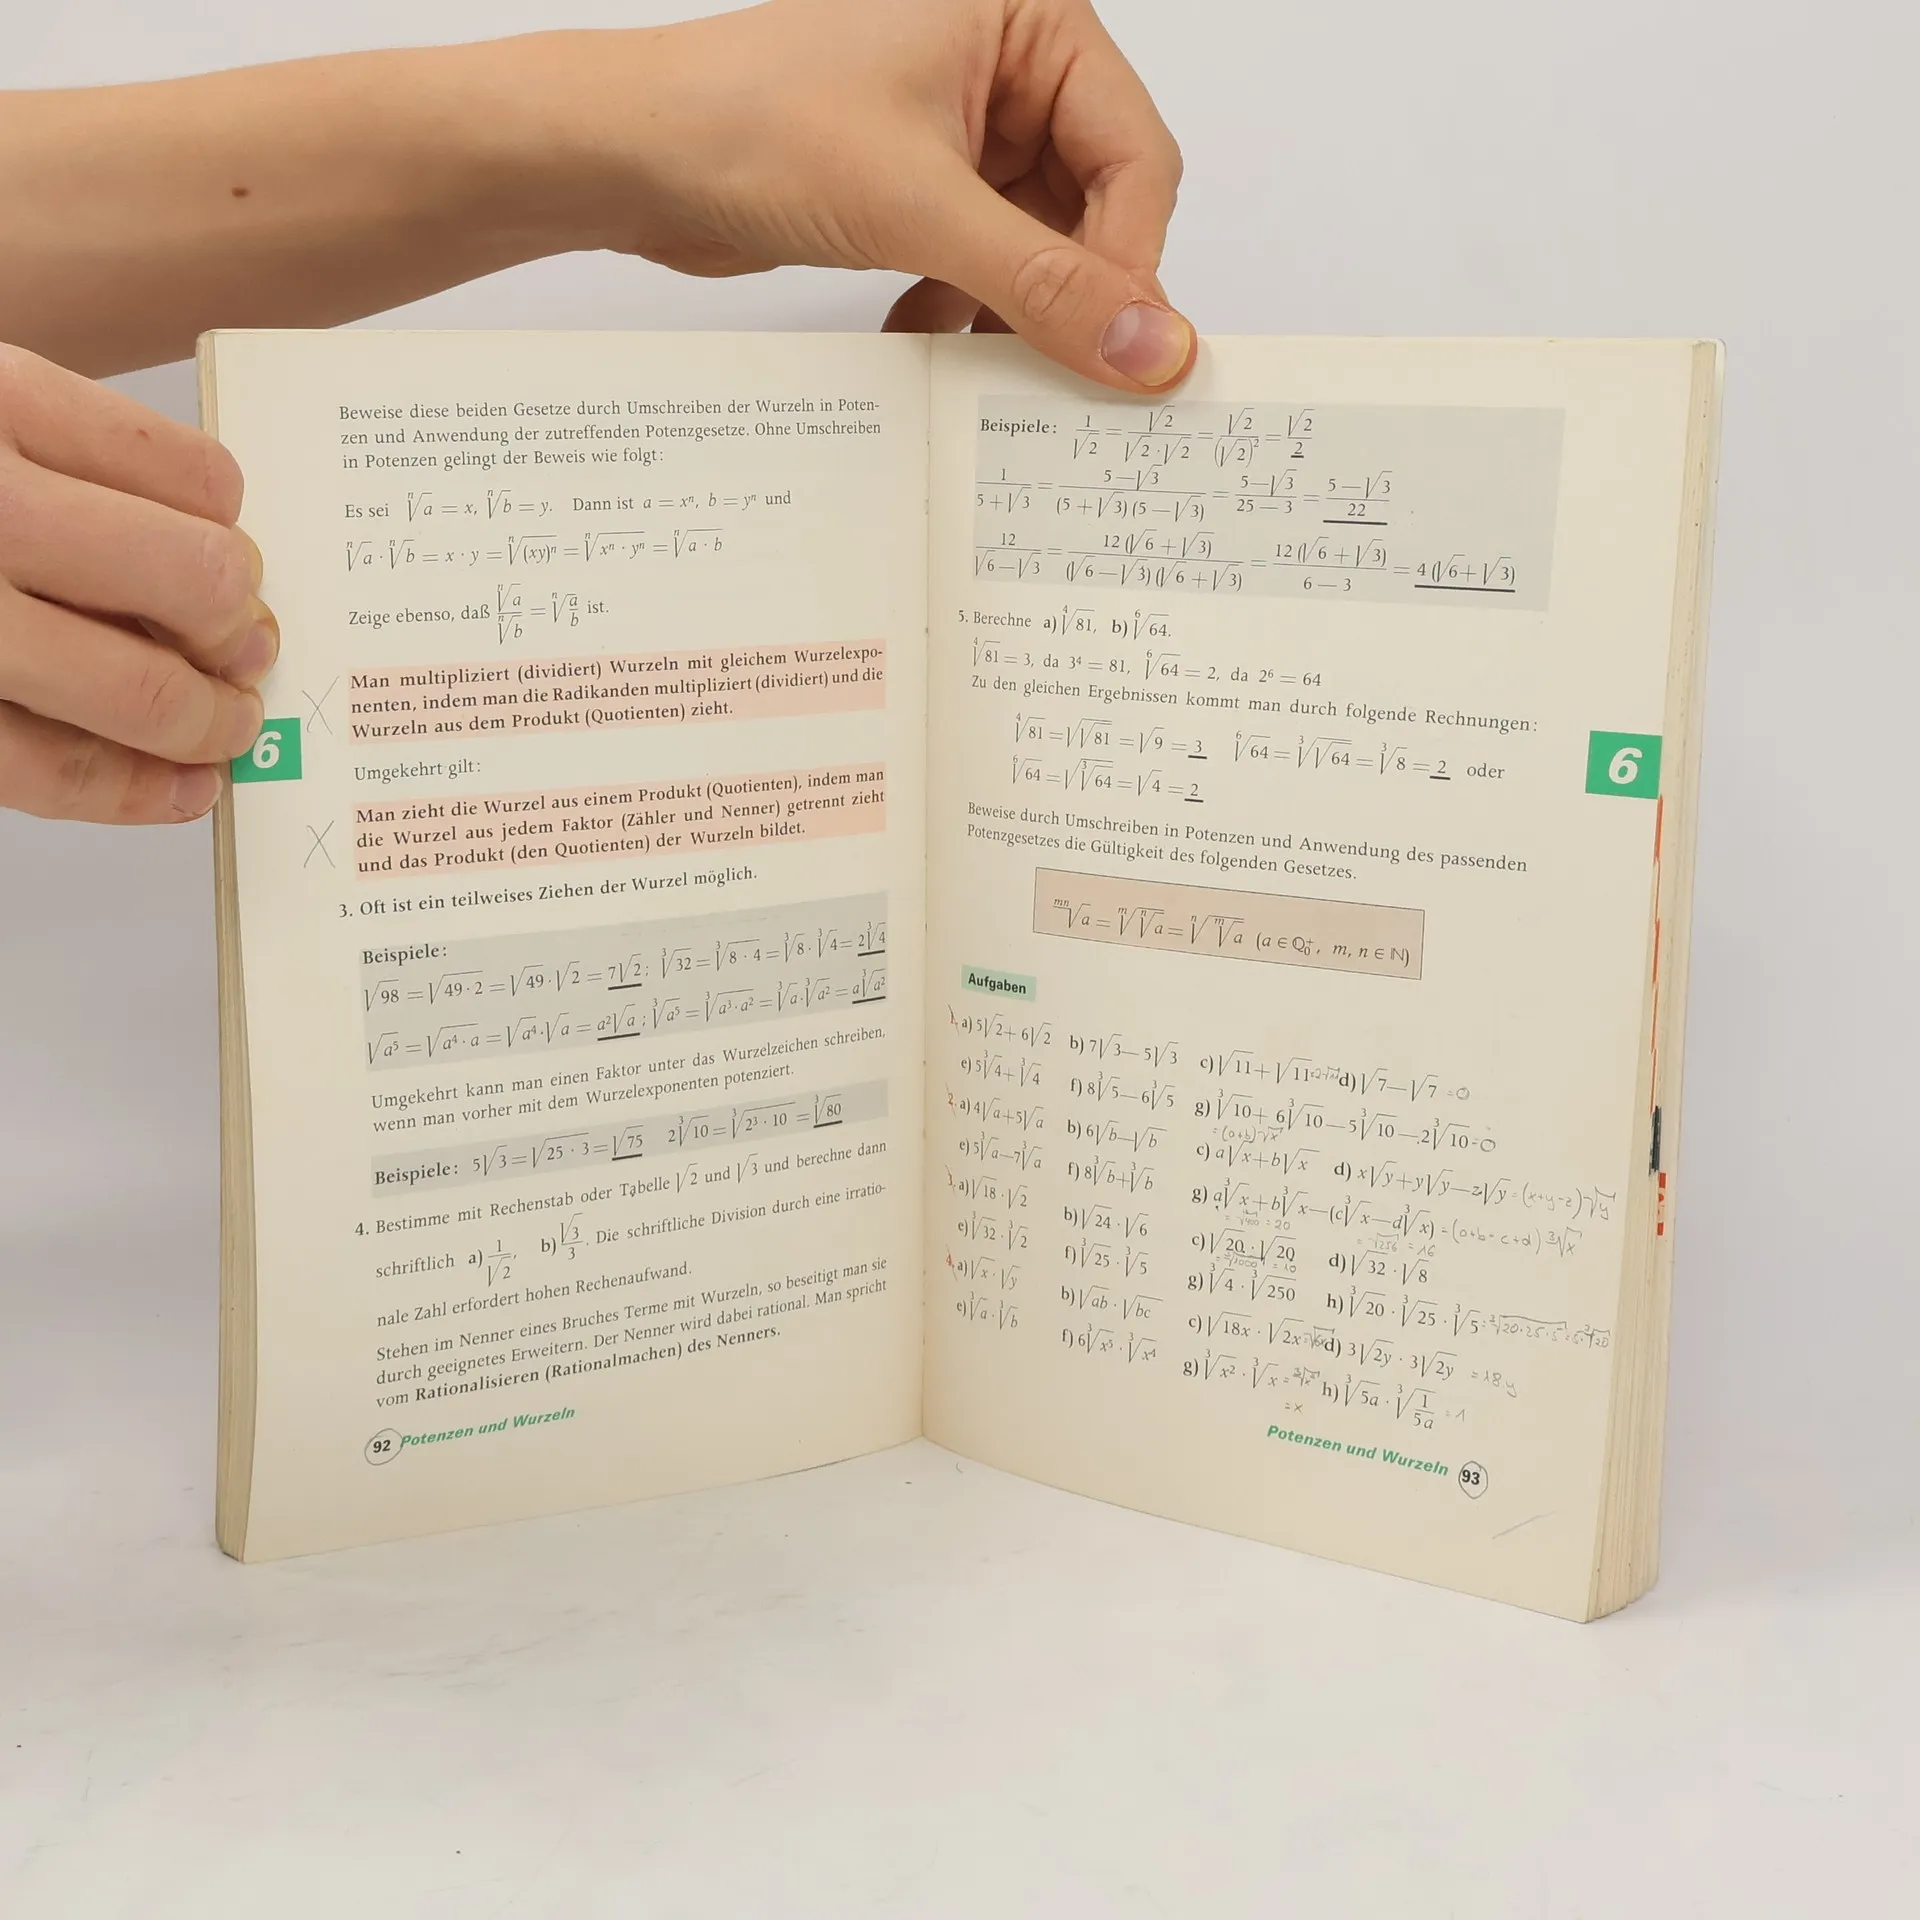 Beweise diese beiden Gesetze durch Umschreiben der Wurzeln in Poten-
zen und Anwendung der zutreffenden Potenzgesetze. Ohne Umschreiben
in Potenzen gelingt der Beweis wie folgt:
Es sei ⁿ√a = x, ⁿ√b = y. Dann ist a = xⁿ, b = yⁿ und
ⁿ√a · ⁿ√b = x · y = ⁿ√(xy)ⁿ = ⁿ√xⁿ · yⁿ = ⁿ√a · b
Zeige ebenso, daß ⁿ√a/ⁿ√b = ⁿ√a/b ist.
Man multipliziert (dividiert) Wurzeln mit gleichem Wurzelexpo-
nenten, indem man die Radikanden multipliziert (dividiert) und die
Wurzeln aus dem Produkt (Quotienten) zieht.
6
Umgekehrt gilt:
Man zieht die Wurzel aus einem Produkt (Quotienten), indem man
die Wurzel aus jedem Faktor (Zähler und Nenner) getrennt zieht
und das Produkt (den Quotienten) der Wurzeln bildet.
3. Oft ist ein teilweises Ziehen der Wurzel möglich.
Beispiele:
√98 = √49 · 2 = √49 · √2 = 7√2; ³√32 = ³√8 · 4 = ³√8 · ³√4 = 2³√4
√a⁵ = √a⁴ · a = √a⁴ · √a = a²√a; ³√a⁵ = ³√a³ · a² = ³√a · ³√a² = a³√a²
Umgekehrt kann man einen Faktor unter das Wurzelzeichen schreiben,
wenn man vorher mit dem Wurzelexponenten potenziert.
Beispiele: 5√3 = √25 · 3 = √75 2³√10 = ³√2³ · 10 = ³√80
4. Bestimme mit Rechenstab oder Tabelle √2 und √3 und berechne dann
schriftlich a) 1/√2, b) √3/3. Die schriftliche Division durch eine irratio-
nale Zahl erfordert hohen Rechenaufwand.
Stehen im Nenner eines Bruches Terme mit Wurzeln, so beseitigt man sie
durch geeignetes Erweitern. Der Nenner wird dabei rational. Man spricht
vom Rationalisieren (Rationalmachen) des Nenners.
92 Potenzen und Wurzeln
Beispiele: 1/√2 = √2/(√2 · √2) = √2/(√2)² = √2/2
1/(5 + √3) = (5 — √3)/((5 + √3)(5 — √3)) = (5 — √3)/(25 — 3) = (5 — √3)/22
12/(√6 — √3) = 12(√6 + √3)/((√6 — √3)(√6 + √3)) = 12(√6 + √3)/(6 — 3) = 4(√6 + √3)
5. Berechne a) ⁴√81, b) ⁶√64.
⁴√81 = 3, da 3⁴ = 81, ⁶√64 = 2, da 2⁶ = 64
Zu den gleichen Ergebnissen kommt man durch folgende Rechnungen:
⁴√81 = √√81 = √9 = 3 ⁶√64 = ³√√64 = ³√8 = 2 oder
⁶√64 = √³√64 = √4 = 2
6
Beweise durch Umschreiben in Potenzen und Anwendung des passenden
Potenzgesetzes die Gültigkeit des folgenden Gesetzes.
ᵐⁿ√a = ᵐ√ⁿ√a = ⁿ√ᵐ√a (a ∈ ℚ₀⁺, m, n ∈ ℕ)
Aufgaben
1. a) 5√2 + 6√2 b) 7√3 — 5√3 c) √11 + √11 = 2√11 d) √7 — √7 = 0
e) 5³√4 + ³√4 f) 8³√5 — 6³√5 g) ³√10 + 6³√10 — 5³√10 — 2³√10 = 0
= (a+b)·√x
2. a) 4√a + 5√a b) 6√b — √b c) a√x + b√x d) x√y + y√y — z√y = (x+y-z)·√y
e) 5³√a — 7³√a f) 8³√b + ³√b g) a³√x + b³√x — (c³√x — d³√x) = (a+b-c+d) ³√x
= √400 = 20 = √256 = 16
3. a) √18 · √2 b) √24 · √6 c) √20 · √20 d) √32 · √8
= ³√1000 = 10
e) ³√32 · ³√2 f) ³√25 · ³√5 g) ³√4 · ³√250 h) ³√20 · ³√25 · ³√5 = ³√20·25·5 = 5·³√20
4. a) √x · √y b) √ab · √bc c) √18x · √2x d) 3√2y · 3√2y = 18·y
e) ³√a · ³√b f) 6³√x⁵ · ³√x⁴ g) ³√x² · ³√x = ³√x³ h) ³√5a · ³√1/5a = 1
= x
Potenzen und Wurzeln 93